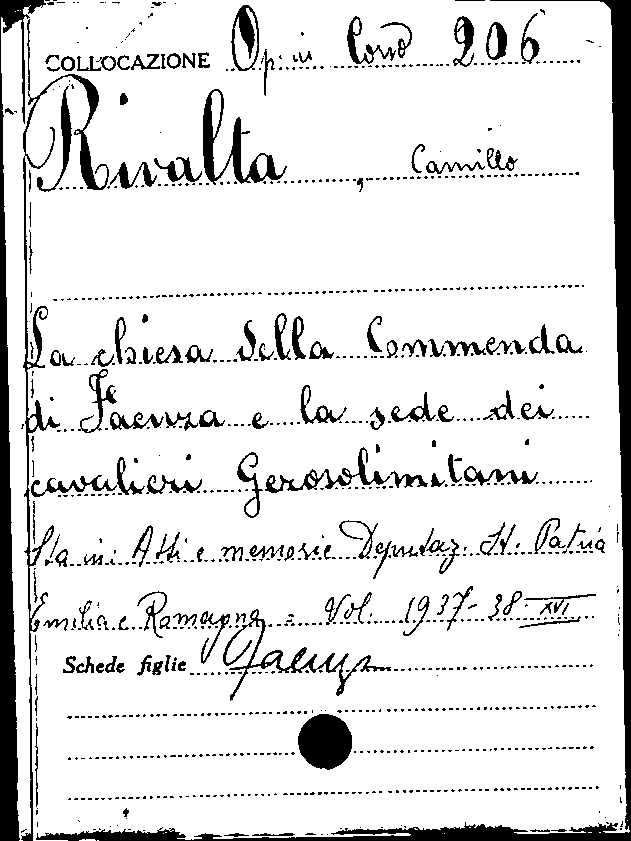 COLLOCAZIONE Op. in Corso 206
Rivalta, Camillo
La chiesa della Commenda
di Faenza e la sede dei
cavalieri Gerosolimitani
Sta in: Atti e memorie Deputaz. St. Patria
Emilia e Romagna = Vol. 1937-38 - XVI
Schede figlie Faenza